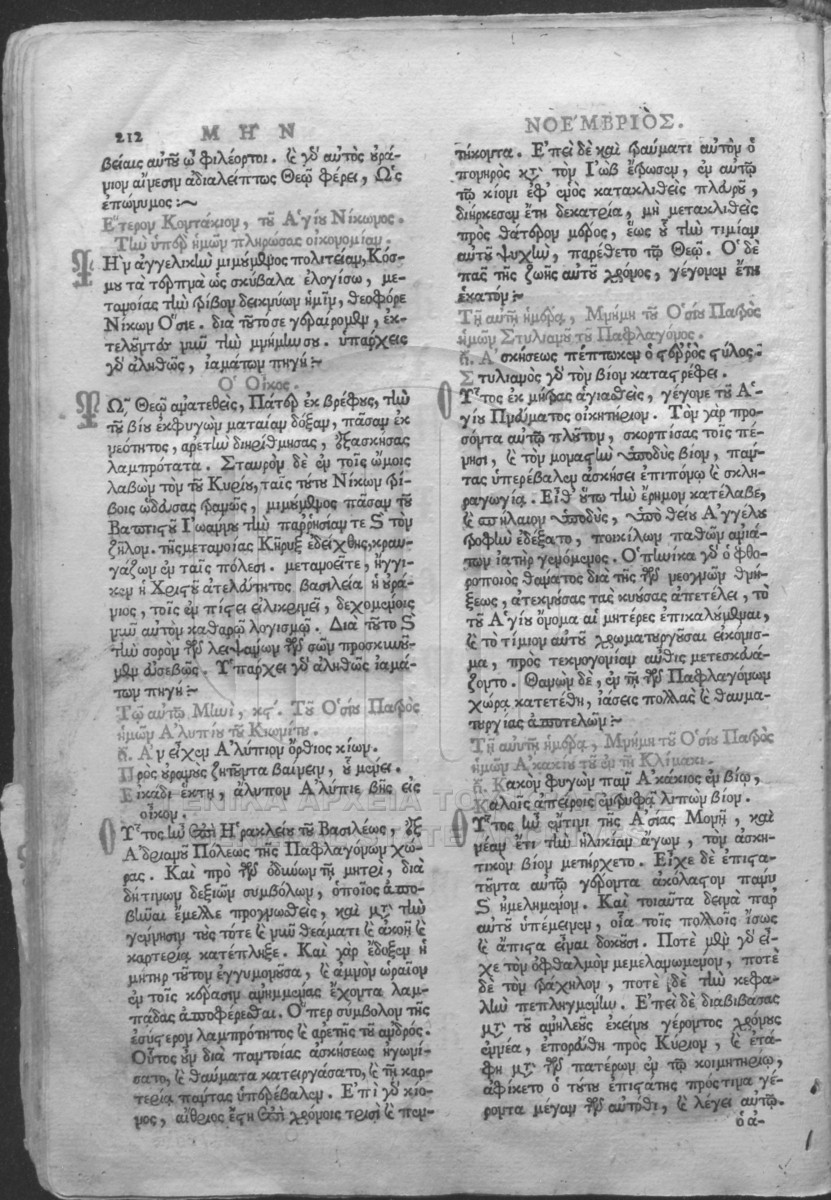 212 ΜΗΝ
βείαις αὐτοῦ ὦ φιλέορτοι. καὶ γὰρ αὐτὸς οὐρά-
νιον αἴνεσιν ἀδιαλείπτως Θεῷ φέρει, Ὡς
ἐπώνυμος :~
Ἕτερον Κοντάκιον, τοῦ Ἁγίου Νίκωνος.
Τὴν ὑπὲρ ἡμῶν πληρώσας οἰκονομίαν.
Τὴν ἀγγελικὴν μιμούμενος πολιτείαν, Κόσ-
μου τὰ τερπνὰ ὡς σκύβαλα ἐλογίσω, με-
τανοίας τὴν τρίβον δεικνύων ἡμῖν, θεοφόρε
Νίκων Ὅσιε. διὰ τοῦτό σε γεραίρομεν, ἐκ-
τελοῦντες νῦν τὴν μνήμην σου. ὑπάρχεις
γὰρ ἀληθῶς, ἰαμάτων πηγή :~
Ὁ Οἶκος.
Τῷ Θεῷ ἀνατεθεὶς, Πάτερ ἐκ βρέφους, τὴν
τοῦ βίου ἐκφυγὼν ματαίαν δόξαν, πᾶσαν ἐκ
νεότητος, ἀρετὴν διηρίθμησας, ἐξασκήσας
λαμπρότατα. Σταυρὸν δὲ ἐν τοῖς ὤμοις
λαβὼν τὸν τοῦ Κυρίου, ταῖς τούτου Νίκων τρί-
βοις ὥδευσας τρανῶς, μιμούμενος πᾶσαν τοῦ
Βαπτιστοῦ Ἰωάννου τὴν παῤῥησίαν τε καὶ τὸν
ζῆλον. τῆς μετανοίας Κήρυξ ἐδείχθης, κραυ-
γάζων ἐν ταῖς πόλεσι. μετανοεῖτε, ἤγγι-
κεν ἡ Χριστοῦ ἀτελεύτητος βασιλεία ἡ οὐρά-
νιος, τοῖς ἐν πίστει εἰλικρινεῖ, δεχομένοις
νῦν αὐτὸν καθαρῷ λογισμῷ. Διὰ τοῦτο καὶ
τὴν σορὸν τῶν λειψάνων τῶν σῶν προσκυνοῦ-
μεν εὐσεβῶς. Ὑπάρχει γὰρ ἀληθῶς ἰαμά-
των πηγή :~
Τῷ αὐτῷ Μηνὶ, κϛ΄. Τοῦ Ὁσίου Πατρὸς
ἡμῶν Ἀλυπίου τοῦ Κιωνίτου.
Ἀνεῖχεν Ἀλύπιον ὄρθιος κίων.
Πρὸς οὐρανοὺς ζητοῦντα βαίνειν, οὗ μένει.
Εἰκάδι ἕκτῃ, ἄλυπον Ἀλύπιε βῆς εἰς
οἶκον.
Οὗτος ἦν ἐπὶ Ἡρακλείου τοῦ Βασιλέως, ἐξ
Ἀδριανοῦ Πόλεως τῆς Παφλαγόνων χώ-
ρας. Καὶ πρὸ τῶν ὀδυνῶν τῇ μητρὶ, διά
δή τινων δεξιῶν συμβόλων, ὁποῖος ἀπο-
βῆναι ἔμελλε προγνωθεὶς, καὶ μετὰ τὴν
γέννησιν τοὺς τότε καὶ νῦν θεάματι καὶ ἀκοῇ καὶ
καρτερίᾳ κατέπληξε. Καὶ γὰρ ἔδοξεν ἡ
μήτηρ τοῦτον ἐγκυμονοῦσα, καὶ ἀμνὸν ὡραῖον
ἐν τοῖς κέρασιν ἀνημμένας ἔχοντα λαμ-
πάδας ἀποφέρεσθαι. Ὅπερ σύμβολον τῆς
ἐσύστερον λαμπρότητος καὶ ἀρετῆς τοῦ ἀνδρός.
Οὗτος οὖν διὰ παντοίας ἀσκήσεως ἠγωνί-
σατο, καὶ θαύματα κατειργάσατο, καὶ τῇ καρ-
τερίᾳ πάντας ὑπερέβαλεν. Ἐπὶ γὰρ κίο-
νος, αἴθριος ἔστη ἐπὶ χρόνοις τρισὶ καὶ πεν-
ΝΟΕΜΒΡΙΟΣ.
τήκοντα. Ἐπεὶ δὲ καὶ τραύματι αὐτὸν ὁ
πονηρὸς κατὰ τὸν Ἰὼβ ἔτρωσεν, ἐν αὐτῷ
τῷ κίονι ἐφ' ἑνὸς κατακλιθεὶς πλευροῦ,
διήρκεσεν ἔτη δεκατρία, μὴ μετακλιθεὶς
πρὸς θάτερον μέρος, ἕως οὗ τὴν τιμίαν
αὐτοῦ ψυχὴν, παρέθετο τῷ Θεῷ. Ὁ δὲ
πᾶς τῆς ζωῆς αὐτοῦ χρόνος, γέγονεν ἔτη
ἑκατόν :~
Τῇ αὐτῇ ἡμέρᾳ, Μνήμη τοῦ Ὁσίου Πατρὸς
ἡμῶν Στυλιανοῦ τοῦ Παφλαγόνος.
Ἀσκήσεως πέπτωκεν ὁ στεῤῥὸς στύλος.
Στυλιανὸς γὰρ τὸν βίον καταστρέφει.
Οὗτος ἐκ μήτρας ἁγιασθεὶς, γέγονε τοῦ Ἁ-
γίου Πνεύματος οἰκητήριον. Τὸν γὰρ προ-
σόντα αὐτῷ πλοῦτον, σκορπίσας τοῖς πέ-
νησι, καὶ τὸν μοναστὴν ὑποδὺς βίον, πάν-
τας ὑπερέβαλεν ἀσκήσει ἐπιπόνῳ καὶ σκλη-
ραγωγίᾳ. Εἶθ' οὕτω τὴν ἔρημον κατέλαβε,
καὶ σπήλαιον ὑποδὺς, ὑπὸ θείου Ἀγγέλου
τροφὴν ἐδέξατο, ποικίλων παθῶν ἀνιά-
των ἰατὴρ γενόμενος. Ὁπηνίκα γὰρ ὁ φθο-
ροποιὸς θάνατος διὰ τῆς τῶν νεογνῶν θνή-
ξεως, ἀτεκνούσας τὰς κυούσας ἀπετέλει, τὸ
τοῦ Ἁγίου ὄνομα αἱ μητέρες ἐπικαλούμεναι,
καὶ τὸ τίμιον αὐτοῦ χρωματουργοῦσαι εἰκόνισ-
μα, πρὸς τεκνογονίαν αὖθις μετεσκευά-
ζοντο. Θανὼν δὲ, ἐν τῇ τῶν Παφλαγόνων
χώρᾳ κατετέθη, ἰάσεις πολλὰς καὶ θαυμα-
τουργίας ἀποτελῶν :~
Τῇ αὐτῇ ἡμέρᾳ, Μνήμη τοῦ Ὁσίου Πατρὸς
ἡμῶν Ἀκακίου τοῦ ἐν τῇ Κλίμακι.
Κακὸν φυγὼν πᾶν Ἀκάκιος ἐν βίῳ,
Καλοῖς ἀπείροις ἐντρυφᾷ λιπὼν βίον.
Οὗτος ἦν ἔν τινι τῆς Ἀσίας Μονῇ, καὶ
νέαν ἔτι τὴν ἡλικίαν ἄγων, τὸν ἀσκη-
τικὸν βίον μετήρχετο. Εἶχε δὲ ἐπιστα-
τοῦντα αὐτῷ γέροντα ἀκόλαστον πάνυ
καὶ ἠμελημένον. Καὶ τοιαῦτα δεινὰ παρ'
αὐτοῦ ὑπέμεινεν, οἷα τοῖς πολλοῖς ἴσως
καὶ ἄπιστα εἶναι δοκοῦσι. Ποτὲ μὲν γὰρ εἶ-
χε τὸν ὀφθαλμὸν μεμελανωμένον, ποτὲ
δὲ τὸν τράχηλον, ποτὲ δὲ τὴν κεφα-
λὴν πεπληγμένην. Ἐπεὶ δὲ διαβιβάσας
μετὰ τοῦ ἀνηλεοῦς ἐκείνου γέροντος χρόνους
ἐννέα, ἐπορεύθη πρὸς Κύριον, καὶ ἐτά-
φη μετὰ τῶν πατέρων ἐν τῷ κοιμητηρίῳ,
ἀφίκετο ὁ τούτου ἐπιστάτης πρός τινα γέ-
ροντα μέγαν τῶν αὐτόθι, καὶ λέγει αὐτῷ.
ὁ ἀ-
ΕΝΙΚΑ ΑΡΧΕΙΑ ΤΟ
STATE ARCHIVES